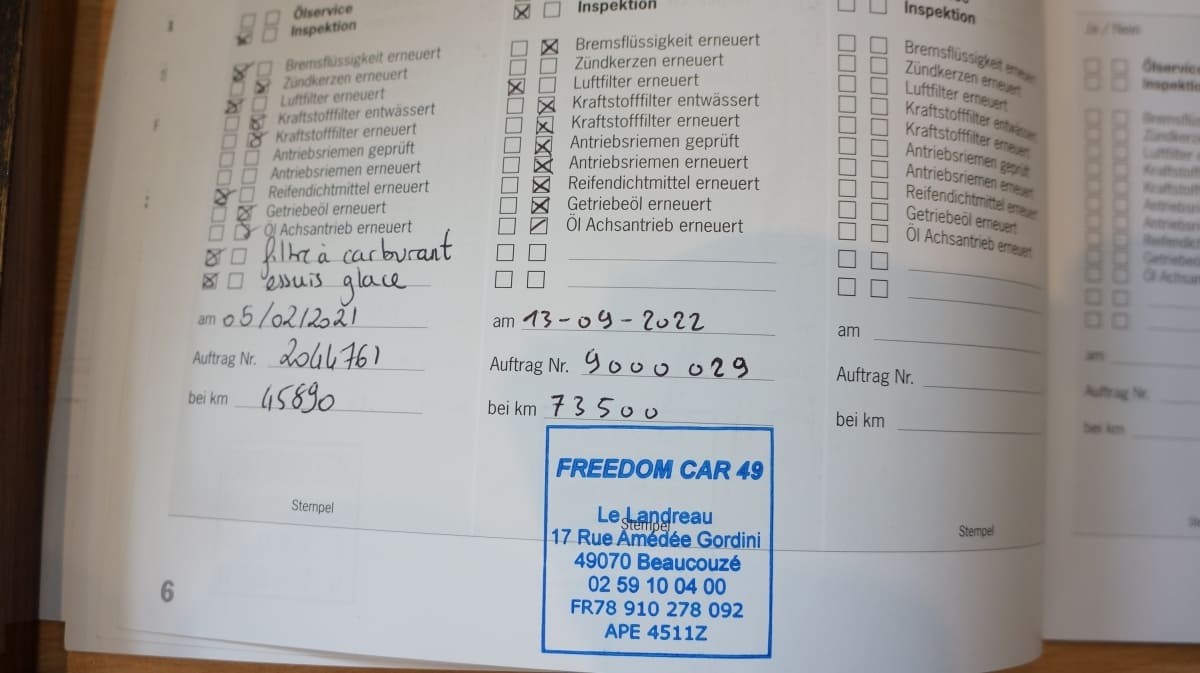 Ölservice
Inspektion
Bremsflüssigkeit erneuert
Zündkerzen erneuert
Luftfilter erneuert
Kraftstofffilter entwässert
Kraftstofffilter erneuert
Antriebsriemen geprüft
Antriebsriemen erneuert
Reifendichtmittel erneuert
Getriebeöl erneuert
Öl Achsantrieb erneuert
filtre à carburant
essuis glace
am 05/02/2021
Auftrag Nr. 2044761
bei km 45890
Stempel
6
Inspektion
Bremsflüssigkeit erneuert
Zündkerzen erneuert
Luftfilter erneuert
Kraftstofffilter entwässert
Kraftstofffilter erneuert
Antriebsriemen geprüft
Antriebsriemen erneuert
Reifendichtmittel erneuert
Getriebeöl erneuert
Öl Achsantrieb erneuert
am 13-09-2022
Auftrag Nr. 9000029
bei km 73500
FREEDOM CAR 49
Le Landreau
Stempel
17 Rue Amédée Gordini
49070 Beaucouzé
02 59 10 04 00
FR78 910 278 092
APE 4511Z
Inspektion
Bremsflüssigkeit erneuert
Zündkerzen erneuert
Luftfilter erneuert
Kraftstofffilter entwässert
Kraftstofffilter erneuert
Antriebsriemen geprüft
Antriebsriemen erneuert
Reifendichtmittel erneuert
Getriebeöl erneuert
Öl Achsantrieb erneuert
am
Auftrag Nr.
bei km
Stempel
Ja / Nein
Ölservice
Inspektion
am
Auftrag Nr.
bei km